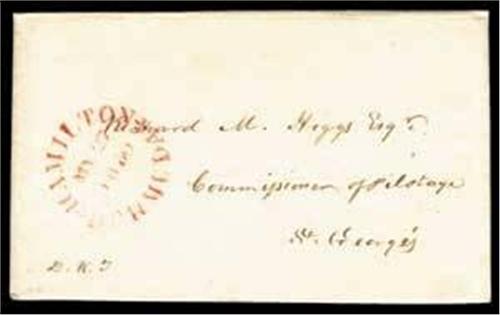 HAMILTON BERMUDA
1860
M. Higgs Esqr.
Commissioner of Pilotage
St. George's